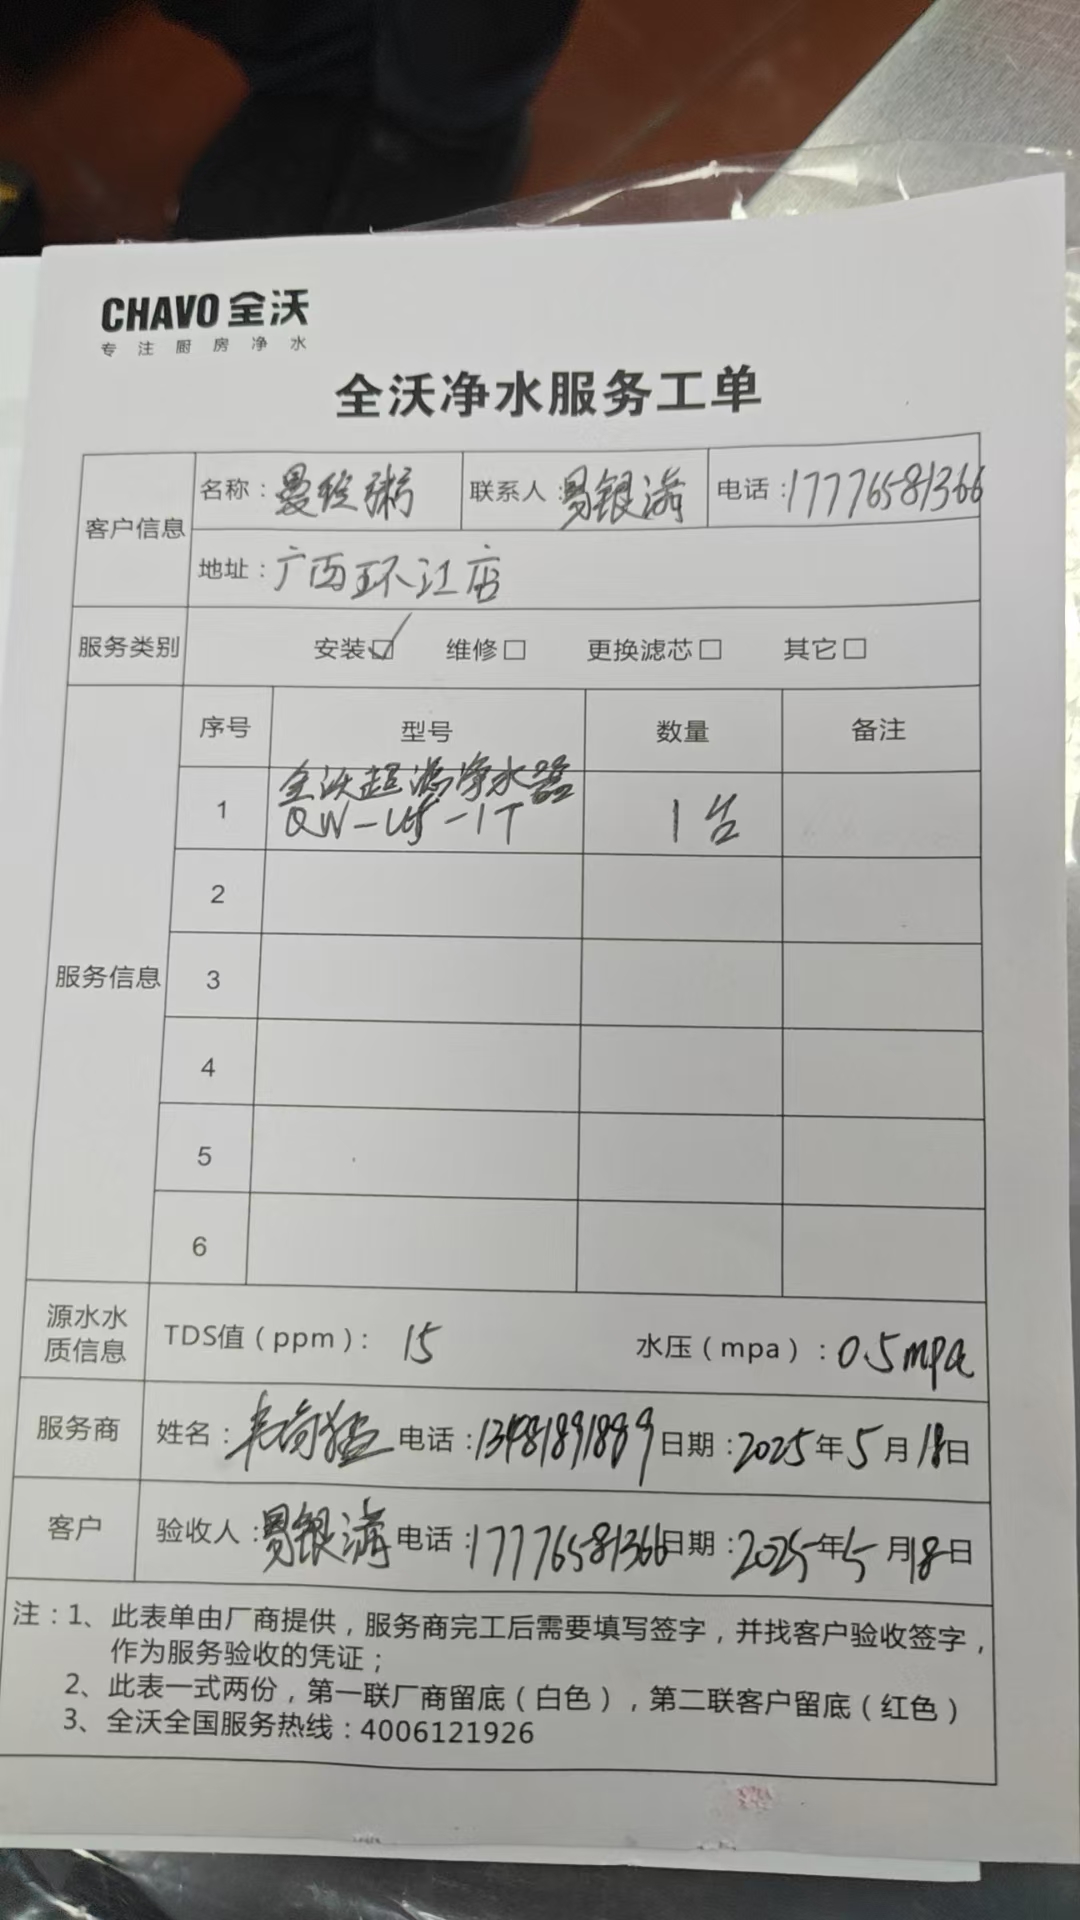 CHAVO 全沃
专注厨房净水
全沃净水服务工单
客户信息
名称：曼玲粥
联系人：易银满
电话：17776581366
地址：广西环江店
服务类别
安装☑ 维修□ 更换滤芯□ 其它□
服务信息
序号 型号 数量 备注
1 全沃超滤净水器 QW-UF-1T 1台
2
3
4
5
6
源水水质信息
TDS值（ppm）：15 水压（mpa）：0.5mpa
服务商 姓名：韦 电话：13481891889 日期：2025年5月18日
客户 验收人：易银满 电话：17776581366 日期：2025年5月18日
注：1、此表单由厂商提供，服务商完工后需要填写签字，并找客户验收签字，
作为服务验收的凭证；
2、此表一式两份，第一联厂商留底（白色），第二联客户留底（红色）
3、全沃全国服务热线：4006121926